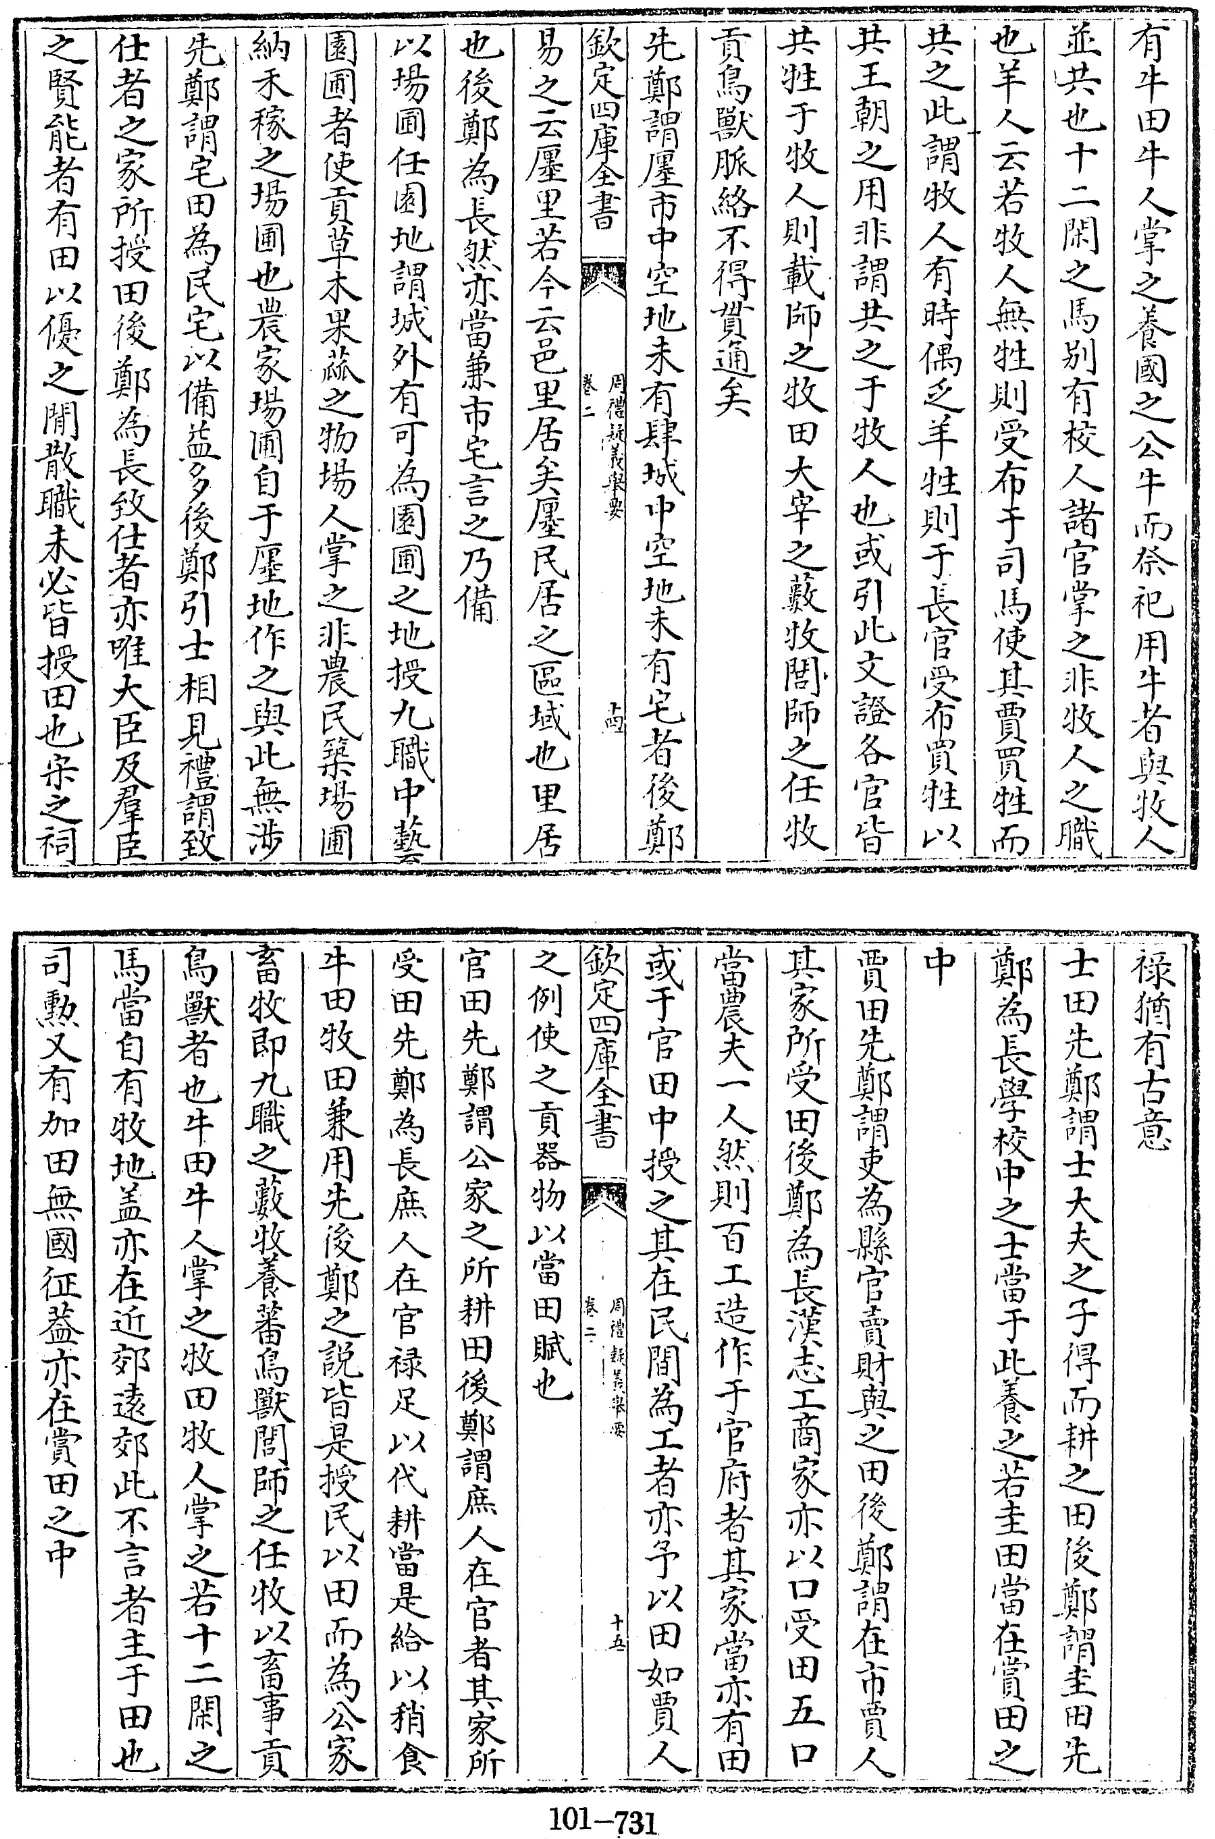 有牛田牛人掌之養國之公牛而祭祀用牛者與牧人
並共也十二閑之馬别有校人諸官掌之非牧人之職
也羊人云若牧人無牲則受布于司馬使其賈買牲而
共之此謂牧人有時偶乏羊牲則于長官受布買牲以
共王朝之用非謂共之于牧人也或引此文證各官皆
共牲于牧人則載師之牧田大宰之藪牧閭師之任牧
貢鳥獸脈絡不得貫通矣
先鄭謂廛市中空地未有肆城中空地未有宅者後鄭
欽定四庫全書
周禮疑義舉要
卷二
十四
易之云廛里若今云邑里居矣廛民居之區域也里居
也後鄭為長然亦當兼市宅言之乃備
以場圃任園地謂城外有可為園圃之地授九職中藝
園圃者使貢草木果蓏之物場人掌之非農民築場圃
納禾稼之場圃也農家場圃自于廛地作之與此無涉
先鄭謂宅田為民宅以備益多後鄭引士相見禮謂致
仕者之家所授田後鄭為長致仕者亦唯大臣及羣臣
之賢能者有田以優之閒散職未必皆授田也宋之祠
禄猶有古意
士田先鄭謂士大夫之子得而耕之田後鄭謂圭田先
鄭為長學校中之士當于此養之若圭田當在賞田之
中
賈田先鄭謂吏為縣官賣財與之田後鄭謂在市賈人
其家所受田後鄭為長漢志工商家亦以口受田五口
當農夫一人然則百工造作于官府者其家當亦有田
或于官田中授之其在民間為工者亦予以田如賈人
欽定四庫全書
周禮疑義舉要
卷二
十五
之例使之貢器物以當田賦也
官田先鄭謂公家之所耕田後鄭謂庶人在官者其家所
受田先鄭為長庶人在官禄足以代耕當是給以稍食
牛田牧田兼用先後鄭之説皆是授民以田而為公家
畜牧即九職之藪牧養蕃鳥獸閭師之任牧以畜事貢
鳥獸者也牛田牛人掌之牧田牧人掌之若十二閑之
馬當自有牧地盖亦在近郊逺郊此不言者主于田也
司勲又有加田無國征葢亦在賞田之中
101-731